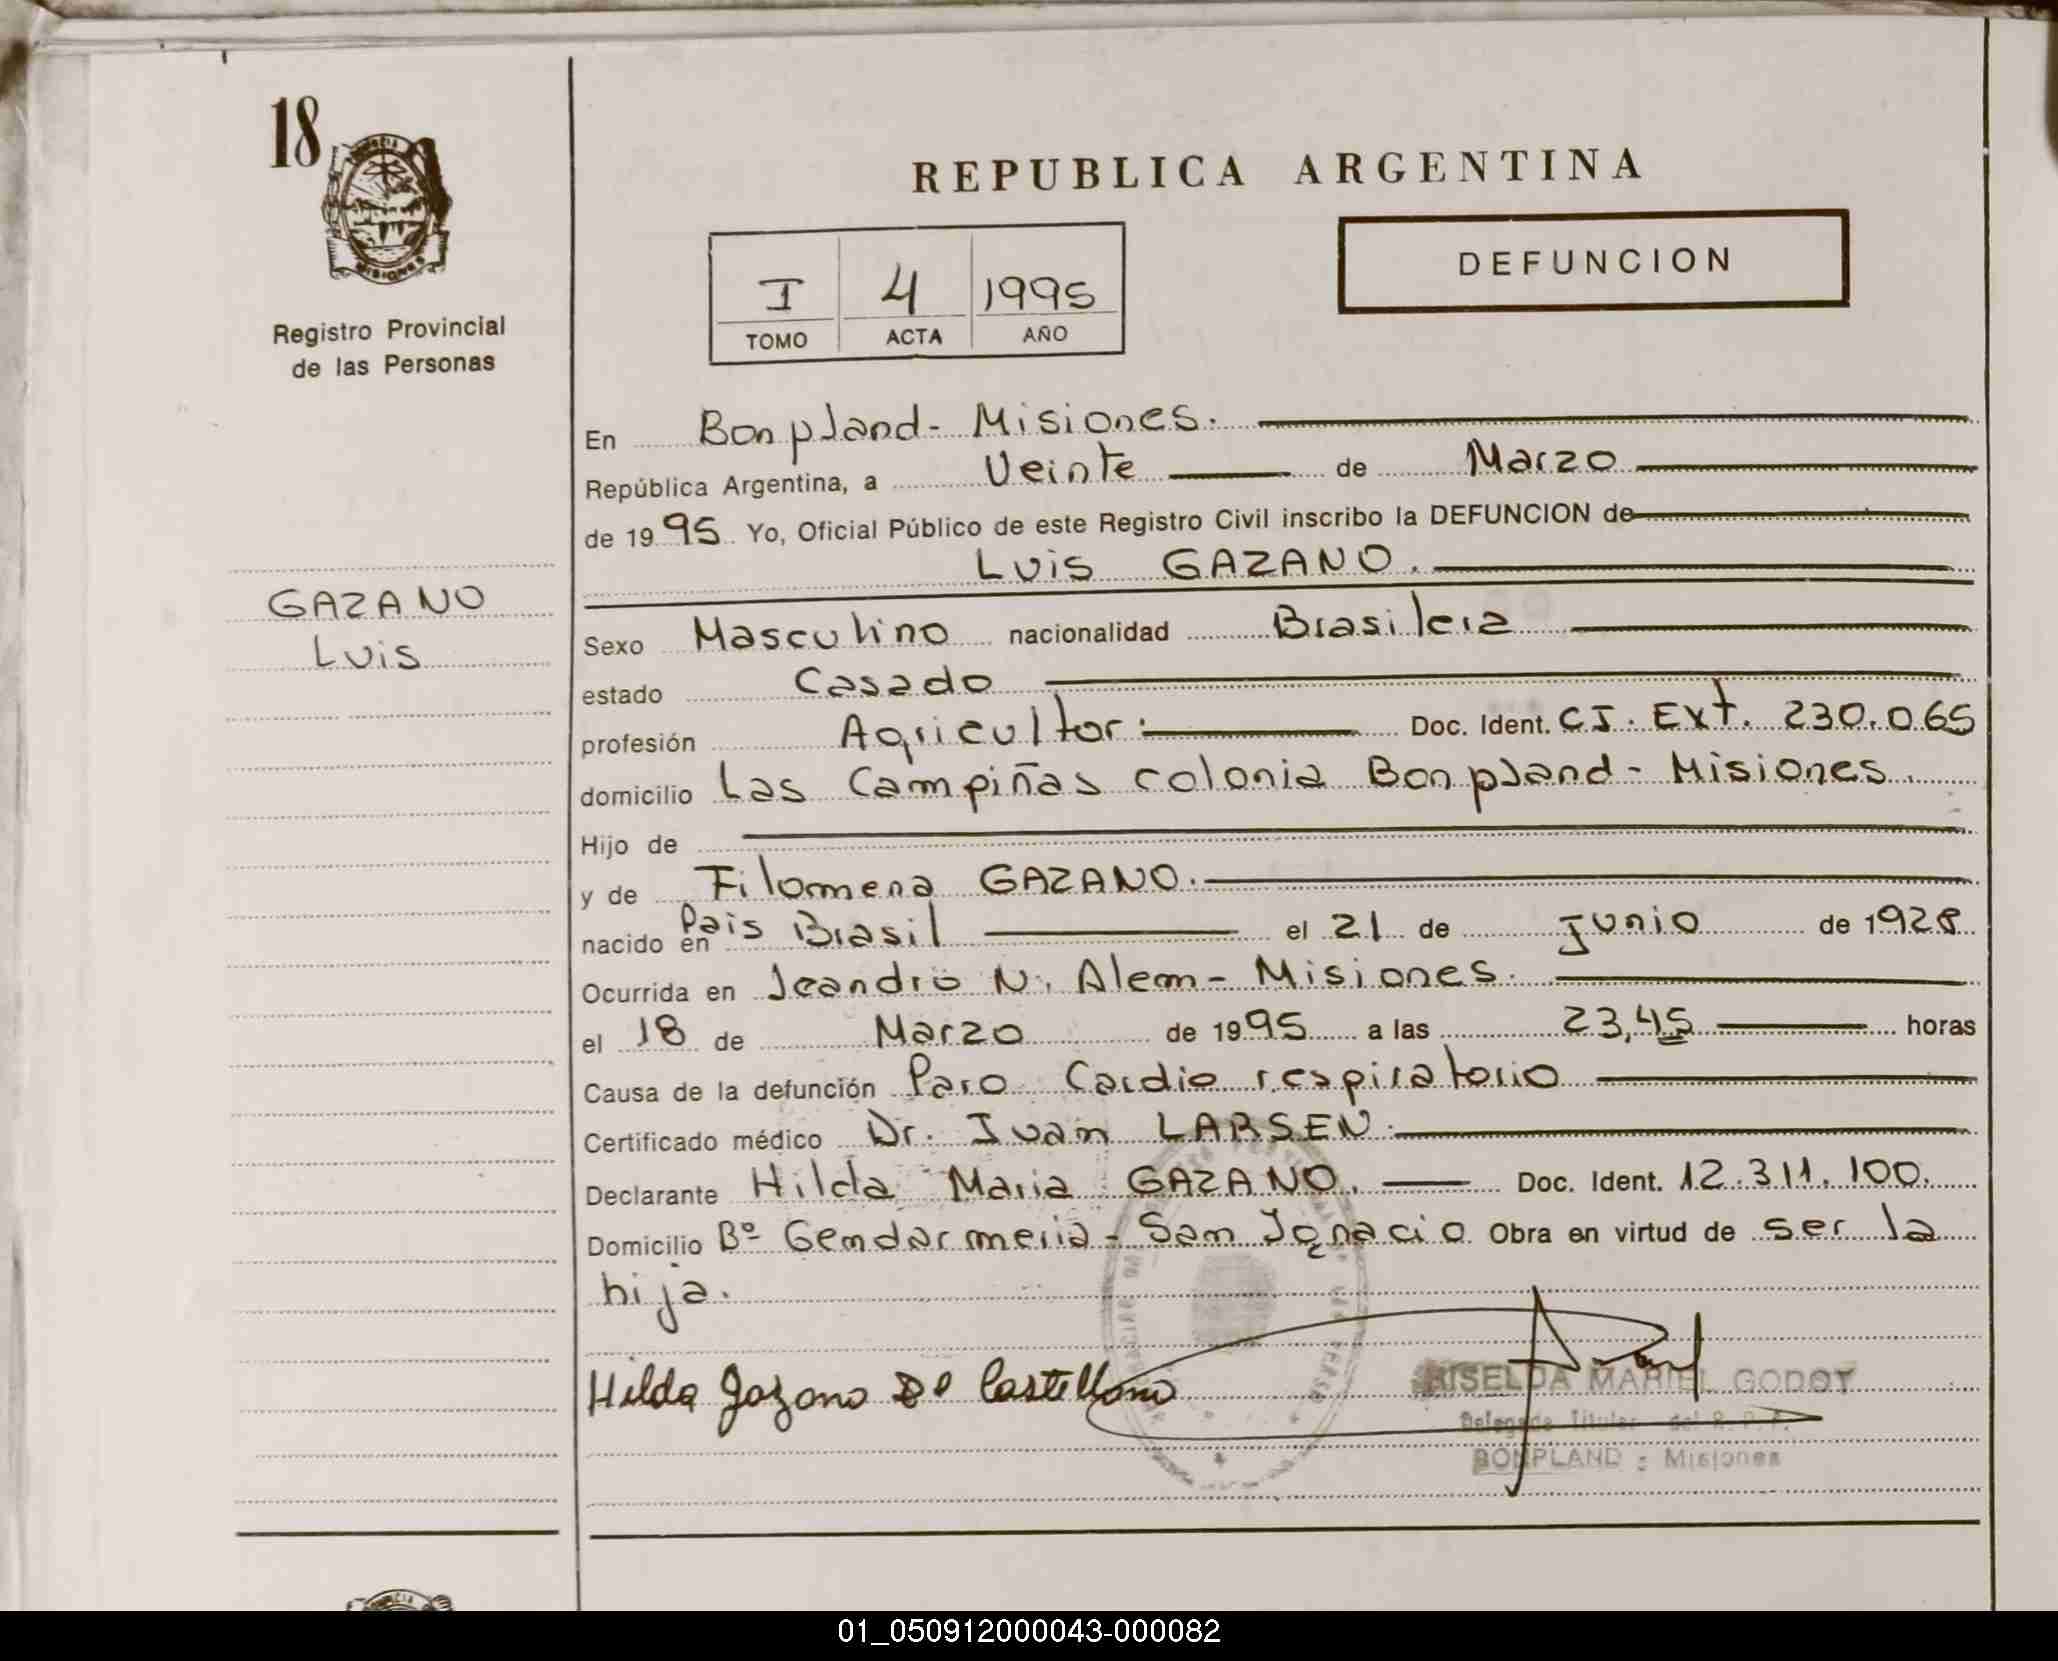 18
PROVINCIA
MISIONES
Registro Provincial
de las Personas
GAZANO
Luis
REPUBLICA ARGENTINA
I 4 1995
TOMO ACTA AÑO
DEFUNCION
En Bonpland - Misiones.
República Argentina, a Veinte de Marzo
de 1995. Yo, Oficial Público de este Registro Civil inscribo la DEFUNCION de
Luis GAZANO.
Sexo Masculino nacionalidad Brasilera
estado Casado
profesión Agricultor. Doc. Ident. CI. Ext. 230.065
domicilio Las Campiñas colonia Bonpland - Misiones.
Hijo de
y de Filomena GAZANO.
nacido en Pais Brasil el 21 de Junio de 1928
Ocurrida en Leandro N. Alem - Misiones.
el 18 de Marzo de 1995 a las 23,45 horas
Causa de la defunción Paro Cardio respiratorio
Certificado médico Dr. Ivan LARSEN.
Declarante Hilda Maria GAZANO. Doc. Ident. 12.311.100.
Domicilio Bº Gendarmeria - San Ignacio Obra en virtud de ser la
hija.
Hilda Gazano De Castellano
GRISELDA MARIEL GODOY
Delegada Titular del R. P. P.
BONPLAND - Misiones
01_050912000043-000082